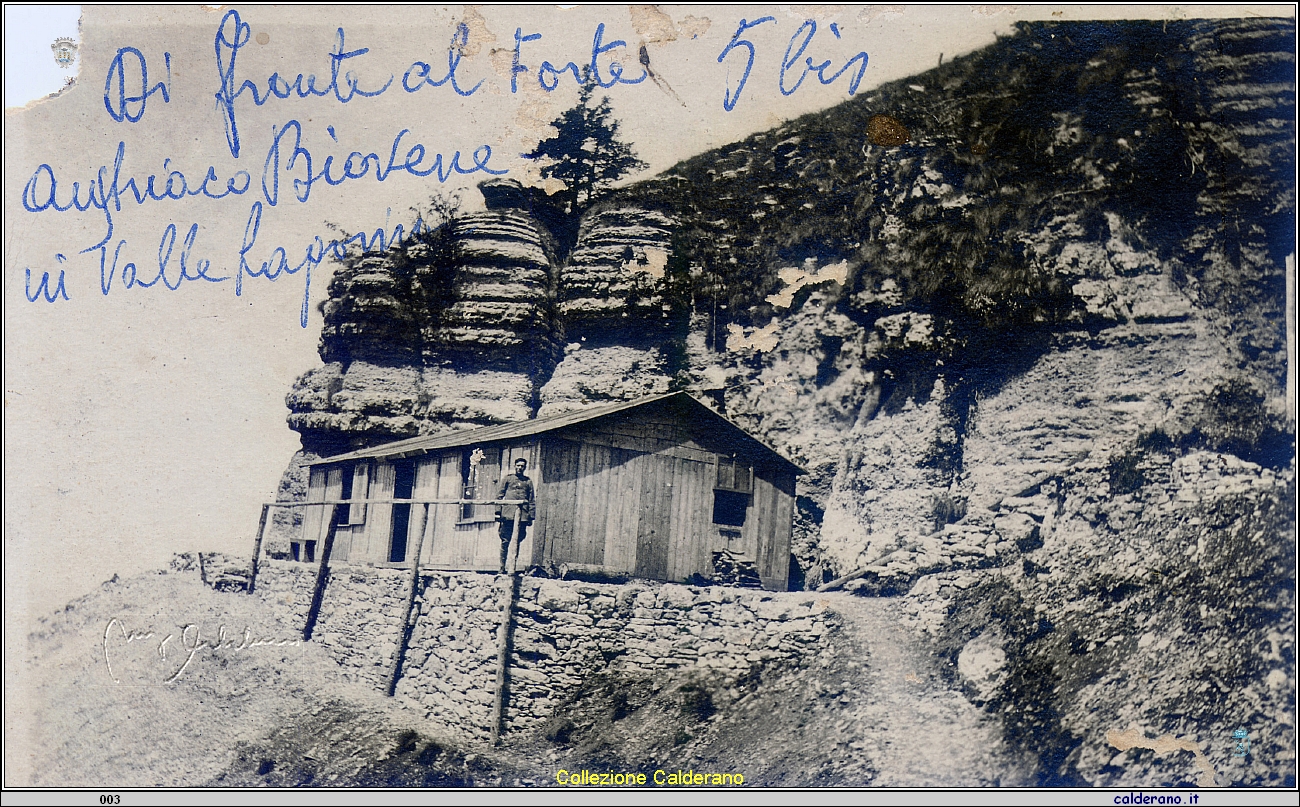 Di fronte al Forte 5 bis
austriaco Biovene
in Valle Laponi
Collezione Calderano
003
calderano.it